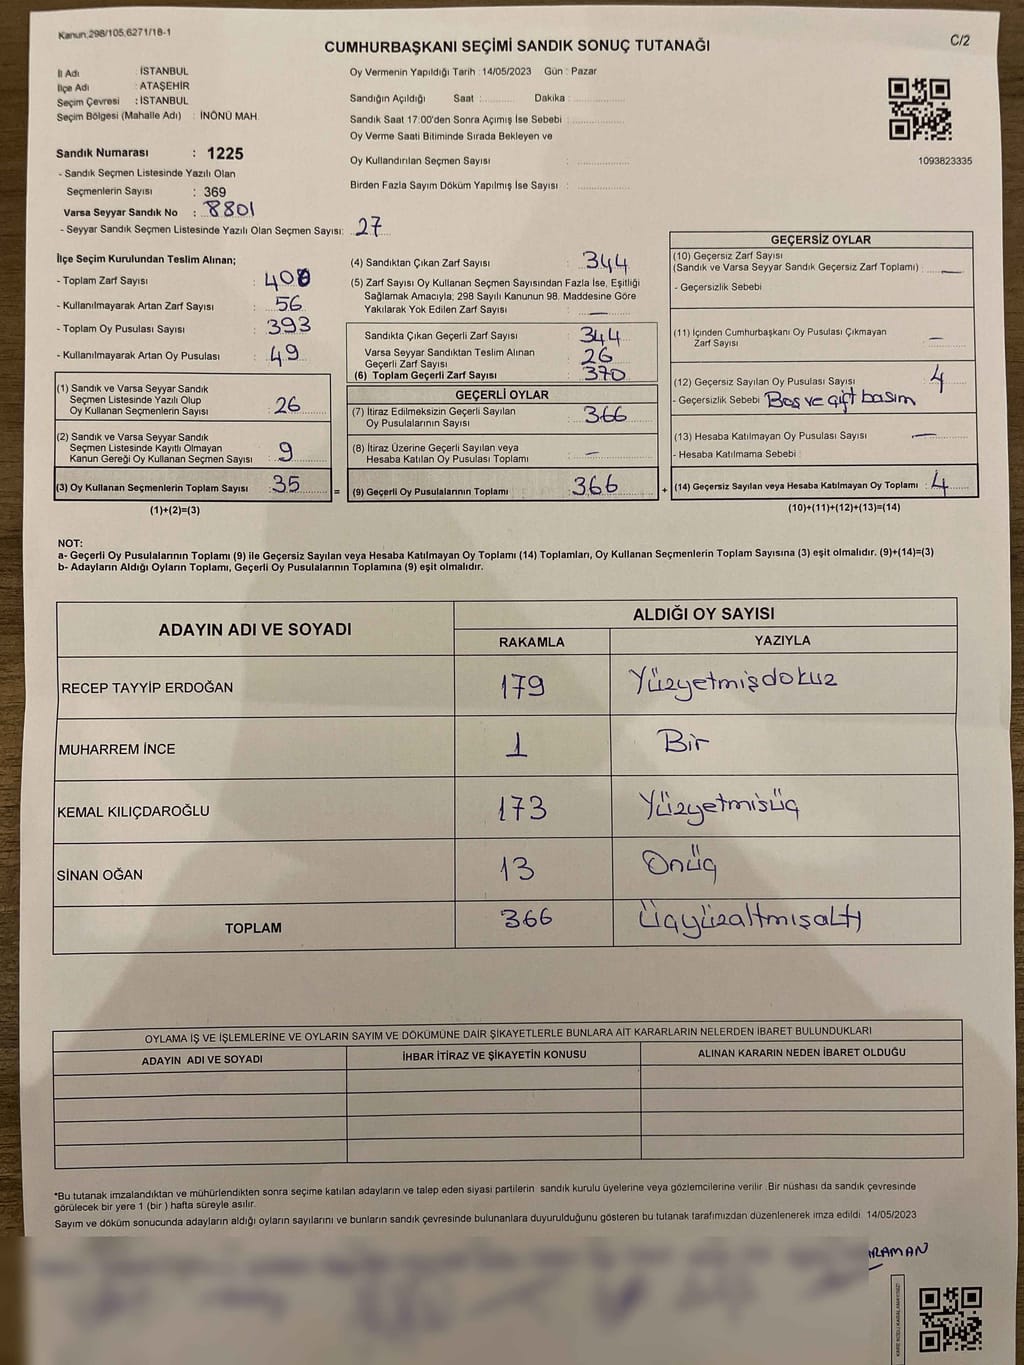 Kanun,298/105,6271/18-1
C/2
CUMHURBAŞKANI SEÇİMİ SANDIK SONUÇ TUTANAĞI
İl Adı : İSTANBUL
İlçe Adı : ATAŞEHİR
Seçim Çevresi : İSTANBUL
Seçim Bölgesi (Mahalle Adı) : İNÖNÜ MAH.
Sandık Numarası : 1225
- Sandık Seçmen Listesinde Yazılı Olan
Seçmenlerin Sayısı : 369
Varsa Seyyar Sandık No : 8801
- Seyyar Sandık Seçmen Listesinde Yazılı Olan Seçmen Sayısı: 27
Oy Vermenin Yapıldığı Tarih : 14/05/2023 Gün : Pazar
Sandığın Açıldığı Saat : Dakika :
Sandık Saat 17:00'den Sonra Açımış İse Sebebi :
Oy Verme Saati Bitiminde Sırada Bekleyen ve
Oy Kullandırılan Seçmen Sayısı :
Birden Fazla Sayım Döküm Yapılmış İse Sayısı :
1093823335
İlçe Seçim Kurulundan Teslim Alınan;
- Toplam Zarf Sayısı : 400
- Kullanılmayarak Artan Zarf Sayısı : 56
- Toplam Oy Pusulası Sayısı : 393
- Kullanılmayarak Artan Oy Pusulası : 49
(1) Sandık ve Varsa Seyyar Sandık
Seçmen Listesinde Yazılı Olup
Oy Kullanan Seçmenlerin Sayısı : 26
(2) Sandık ve Varsa Seyyar Sandık
Seçmen Listesinde Kayıtlı Olmayan
Kanun Gereği Oy Kullanan Seçmen Sayısı : 9
(3) Oy Kullanan Seçmenlerin Toplam Sayısı : 35 =
(1)+(2)=(3)
(4) Sandıktan Çıkan Zarf Sayısı : 344
(5) Zarf Sayısı Oy Kullanan Seçmen Sayısından Fazla İse, Eşitliği
Sağlamak Amacıyla; 298 Sayılı Kanunun 98. Maddesine Göre
Yakılarak Yok Edilen Zarf Sayısı : —
Sandıkta Çıkan Geçerli Zarf Sayısı : 344
Varsa Seyyar Sandıktan Teslim Alınan
Geçerli Zarf Sayısı : 26
(6) Toplam Geçerli Zarf Sayısı : 370
GEÇERLİ OYLAR
(7) İtiraz Edilmeksizin Geçerli Sayılan
Oy Pusulalarının Sayısı : 366
(8) İtiraz Üzerine Geçerli Sayılan veya
Hesaba Katılan Oy Pusulası Toplamı : —
(9) Geçerli Oy Pusulalarının Toplamı : 366 +
GEÇERSİZ OYLAR
(10) Geçersiz Zarf Sayısı
(Sandık ve Varsa Seyyar Sandık Geçersiz Zarf Toplamı) : —
- Geçersizlik Sebebi :
(11) İçinden Cumhurbaşkanı Oy Pusulası Çıkmayan
Zarf Sayısı : —
(12) Geçersiz Sayılan Oy Pusulası Sayısı : 4
- Geçersizlik Sebebi : Boş ve çift basım
(13) Hesaba Katılmayan Oy Pusulası Sayısı : —
- Hesaba Katılmama Sebebi :
(14) Geçersiz Sayılan veya Hesaba Katılmayan Oy Toplamı : 4
(10)+(11)+(12)+(13)=(14)
NOT:
a- Geçerli Oy Pusulalarının Toplamı (9) ile Geçersiz Sayılan veya Hesaba Katılmayan Oy Toplamı (14) Toplamları, Oy Kullanan Seçmenlerin Toplam Sayısına (3) eşit olmalıdır. (9)+(14)=(3)
b- Adayların Aldığı Oyların Toplamı, Geçerli Oy Pusulalarının Toplamına (9) eşit olmalıdır.
ADAYIN ADI VE SOYADI ALDIĞI OY SAYISI
RAKAMLA YAZIYLA
RECEP TAYYİP ERDOĞAN 179 Yüzyetmişdokuz
MUHARREM İNCE 1 Bir
KEMAL KILIÇDAROĞLU 173 Yüzyetmişüç
SİNAN OĞAN 13 Onüç
TOPLAM 366 Üçyüzaltmışaltı
OYLAMA İŞ VE İŞLEMLERİNE VE OYLARIN SAYIM VE DÖKÜMÜNE DAİR ŞİKAYETLERLE BUNLARA AİT KARARLARIN NELERDEN İBARET BULUNDUKLARI
ADAYIN ADI VE SOYADI İHBAR İTİRAZ VE ŞİKAYETİN KONUSU ALINAN KARARIN NEDEN İBARET OLDUĞU
*Bu tutanak imzalandıktan ve mühürlendikten sonra seçime katılan adayların ve talep eden siyasi partilerin sandık kurulu üyelerine veya gözlemcilerine verilir .Bir nüshası da sandık çevresinde
görülecek bir yere 1 (bir ) hafta süreyle asılır.
Sayım ve döküm sonucunda adayların aldığı oyların sayılarını ve bunların sandık çevresinde bulunanlara duyurulduğunu gösteren bu tutanak tarafımızdan düzenlenerek imza edildi. 14/05/2023